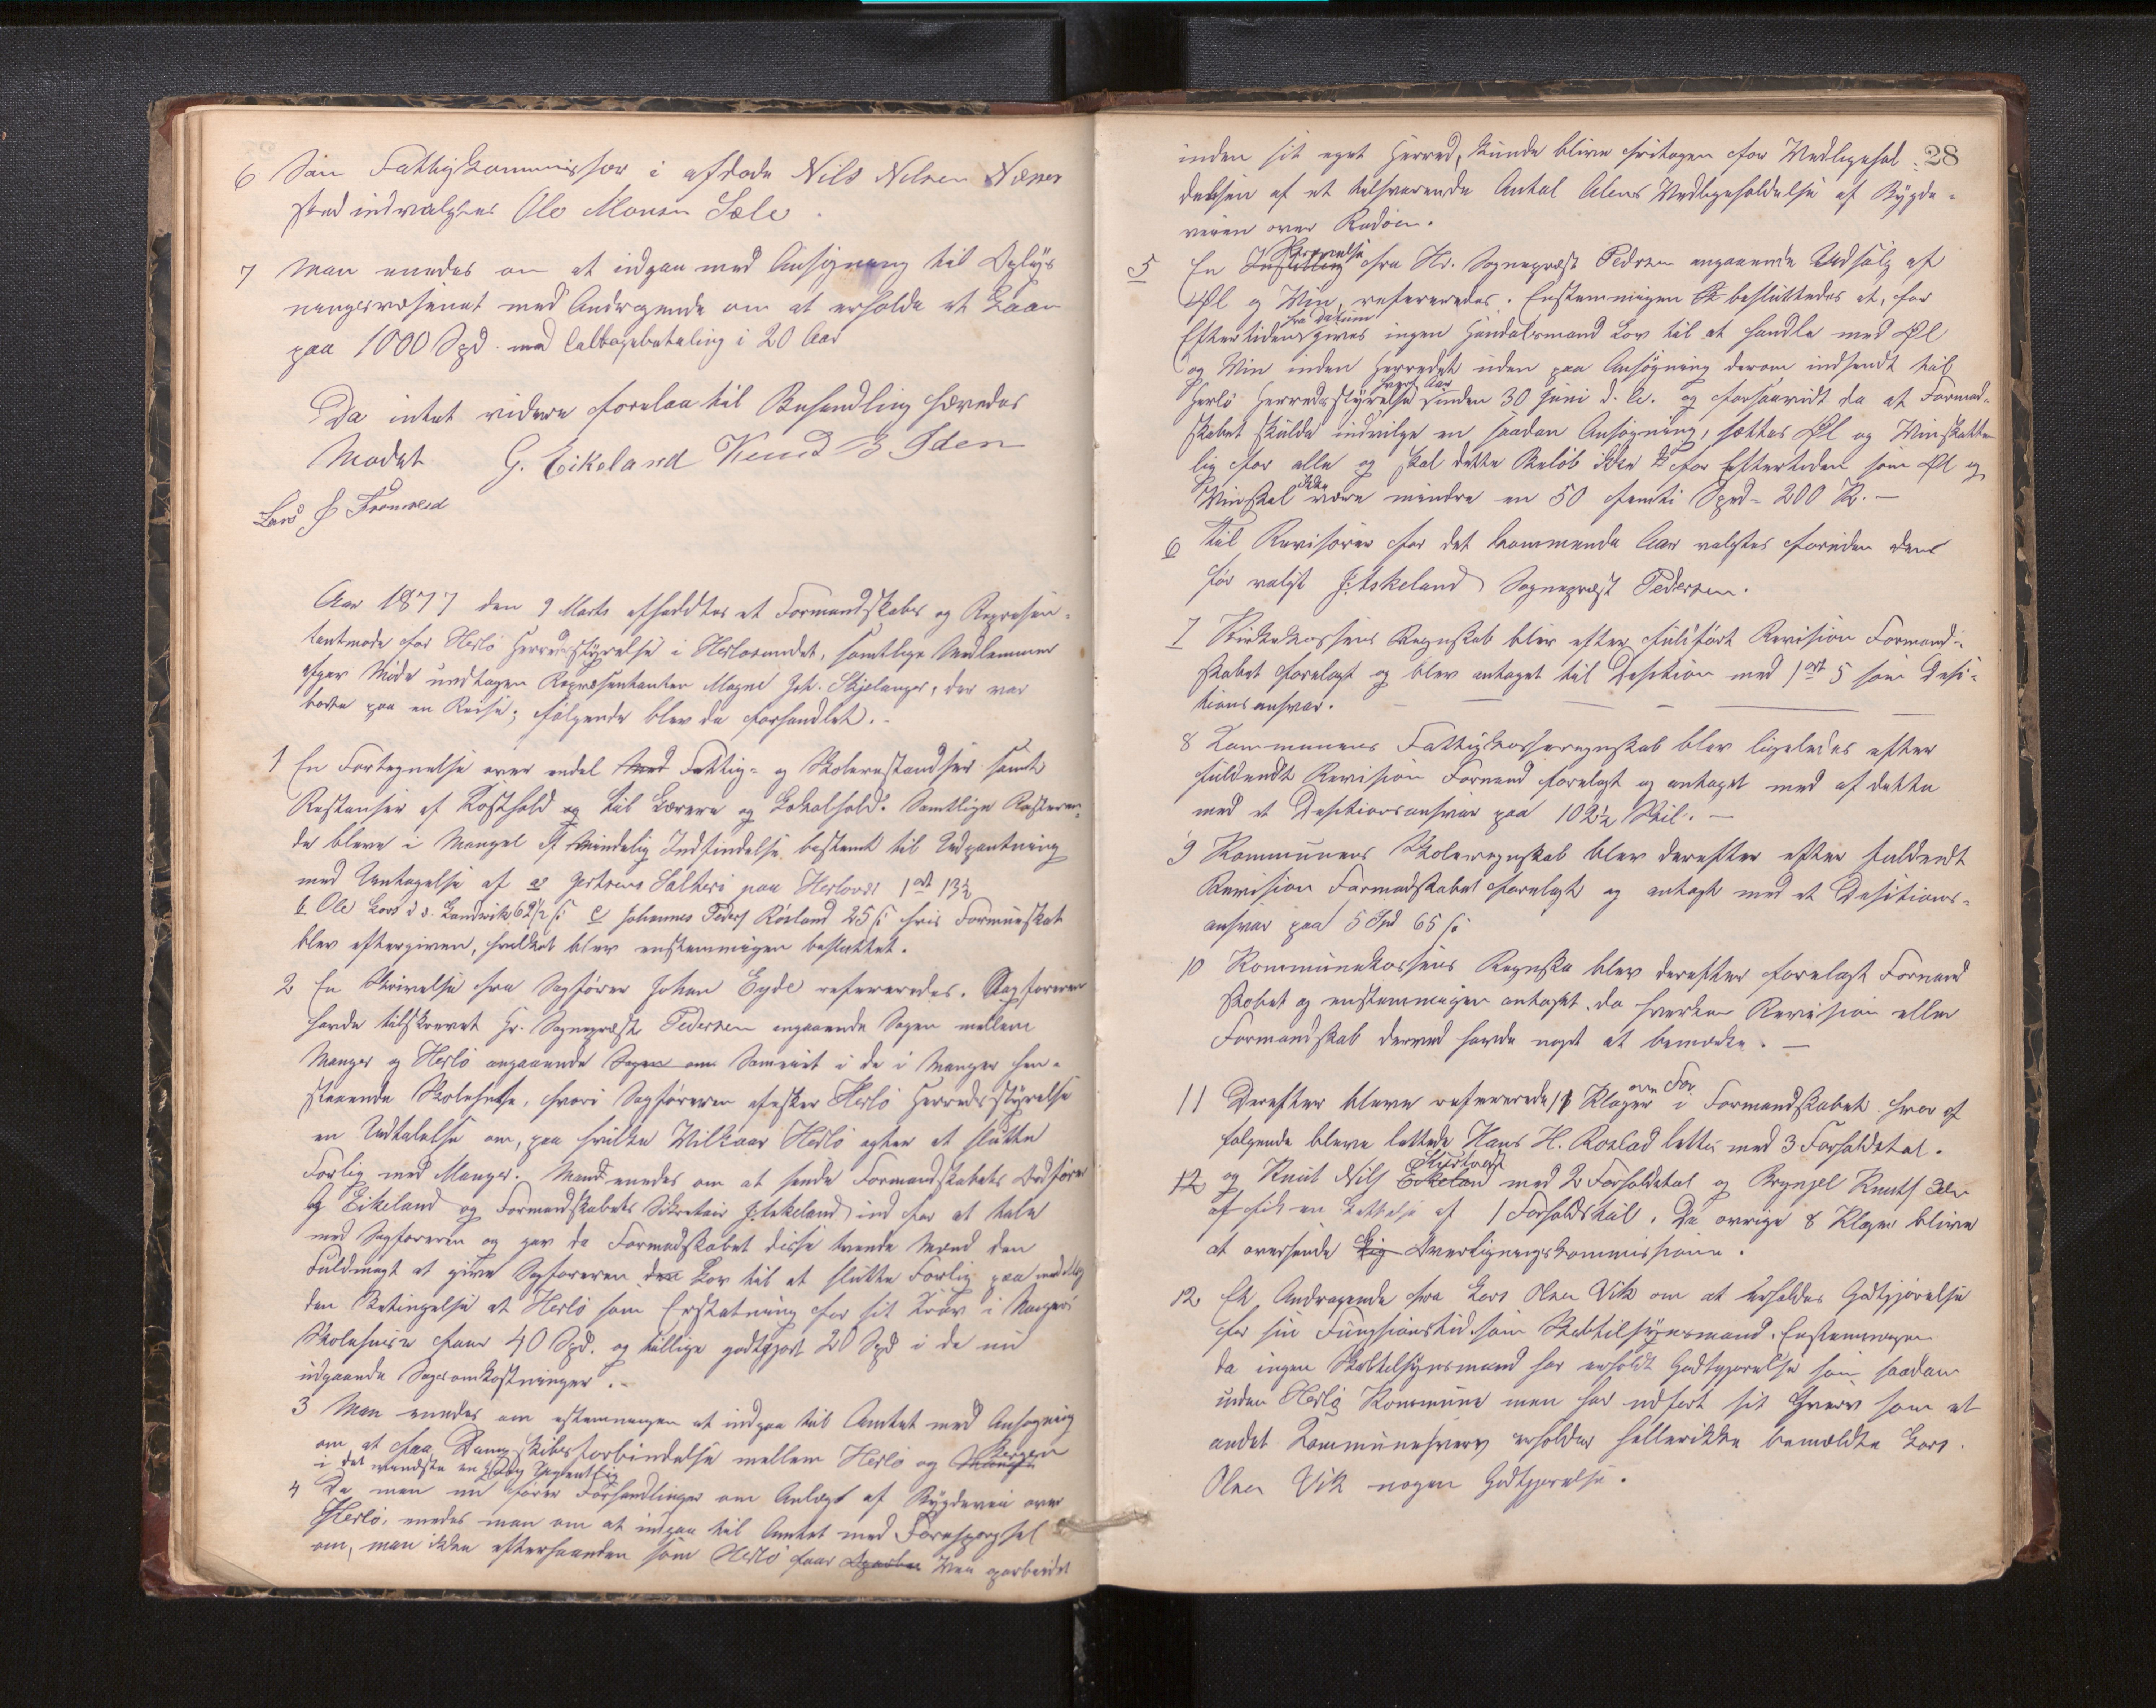 6 Som Fattigkommissær i afdøde Nils Nilsen Næses
sted indvalgtes Ole Monsen Sæle.
7 Man enedes om at indgaa med Ansøgning til Oplys
ningsvæsenet med Andragende om at erholde et Laan
paa 1000 Spd. med Tilbagebetaling i 20 Aar
Da intet videre forelaa til Behandling hævedes
Mødet G. Eikeland Knud B Iden
Lars J Fromreid
Aar 1877 den 9 Marts afholdtes et Formandskabs og Represen-
tantmøde for Herlø Herredsstyrelse i Herløsundet, samtlige Medlemmer
afgav Møde undtagen Repræsentanten Magne Joh. Skjelanger, der var
borte paa en Reise; følgende blev da forhandlet.-
1 En Fortegnelse over endel Fattig- og Skolerestandser samt
Restanser af Kosthold og til Lærere og Lokalhold. Samtlige Resteren-
de bleve i Mangel af mindelig Indfindelse bestemt til Udpantning
med Undtagelse af a Gertrine Salteri paa Herløvær 1 ort 13½
b Ole Lars d.s. Landvik 62½ ß c Johannes Peders Røsland 25 ß hvis Formueskat
blev eftergiven, hvilket blev enstemmigen besluttet.
2 En Skrivelse fra Sagfører Johan Eyde refereredes. Sagføreren
havde tilskrevet Hr. Sognepræst Pedersen angaaende Sagen mellem
Manger og Herlø angaaende Sagen om Sameiet i de i Manger hen-
staaende Skolehuse, hvori Sagføreren afæsker Herlø Herredsstyrelse
en Udtalelse om, paa hvilke Vilkaar Herlø agter at slutte
Forlig med Manger. Mand enedes om at sende Formandskabets Ordfører
G Eikeland og Formandskabets Sikretair J. Askeland ind for at tale
med Sagføreren og gav da Formandskabet disse tvende Mænd den
Fuldmagt at give Sagføreren den Lov til at slutte Forlig paa
den Betingelse at Herlø som Erstatning for sit Krav i Manger
Skolehuse faar 40 Spd. og tillige godtgjort 20 Spd i de nu
udgaaende Sagsomkostninger.-
3 Man enedes om enstemmigen at indgaa til Amtet med Ansøgning
om at faa Dampskibsforbindelse mellem Herlø og Bergen
i det mindste en Gang Ugentlig
4 Da man nu fører Forhandlinger om Anlæg af Bygdevei over
Herlø, enedes man om at indgaa til Amtet med Forespørgsel
om, man ikke efterhaanden som Herlø faar Vei oparbeidet
28
inden sit eget Herred, kunde blive fritagen for Vedligehol-
delsen af et tilsvarende Antal Alens Vedligeholdelse af Bygde-
veien over Radøen.
5 En Skrivelse fra Hr. Sognepræst Pedersen angaaende Udsalg af
Øl og Vin, refereredes. Enstemmigen besluttedes at, for
Eftertiden fra Datum gives ingen Handelsmand Lov til at handle med Øl
og Vin inden Herredet uden paa Ansøgning derom indsendt til
Herlø Herredsstyrelse hvert Aar inden 30 Juni d. A. og forsaavidt da at Formand-
skabet skulde indvilge en saadan Ansøgning, sættes Øl og Vinskatten
lig for alle og skal dette Beløb ikke for Eftertiden som Øl og
Vin skal ikke være mindre en 50 femti Sped = 200 Kr.-
6 Til Revisorer for det kommende Aar valgtes foruden den
før valgt J. Askeland Sognepræst Pedersen.
7 Kirkekassens Regnskab blev efter fuldført Revision Formand-
skabet forelagt og blev antaget til Desition med 1 ort 5 som Desi-
tionsansvar.
8 Kommunens Fattigkasseregnskab blev ligeledes efter
fuldendt Revision Formand forelagt og antaget med af dette
med et Desitionsansvar paa 102½ Skil.-
9 Kommunens Skoleregnskab blev derefter efter fuldendt
Revision Formadskabet forelagt og antagt med et Desitions-
ansvar paa 5 Spd 65 ß
10 Kommunekassens Regnska blev derefter forelagt Formand
skabet og enstemmigen antaget, da hverken Revision eller
Formandskab derved havde noget at bemærke.-
11 Derefter bleve refererede 11 Klager i Formandskabet hvor af
følgende bleve lettede Hans H. Rosland letter med 3 Forholdstal.
og Knut Nils med 2 Forholdstal og Brynjel Knuts
af fik en Lettelse af 1 Forholdstal. De øvrige 8 Klager blive
at oversende Overligningskommissionen.
12 Et Andragende fra Lars Olsen Vik om at erholdes Godtgjørelse
for sin Fungsionstid som Skoletilsynsmand. Enstemmigen
da ingen Skoletilsynsmand har erholdt Godtgjørelse som saadan
inden Herlø Kommune men har udført sit Hverv som et
andet Kommunehverv erholder hellerikke bemældte Lars
Olsen Vik nogen Godtgjørelse.